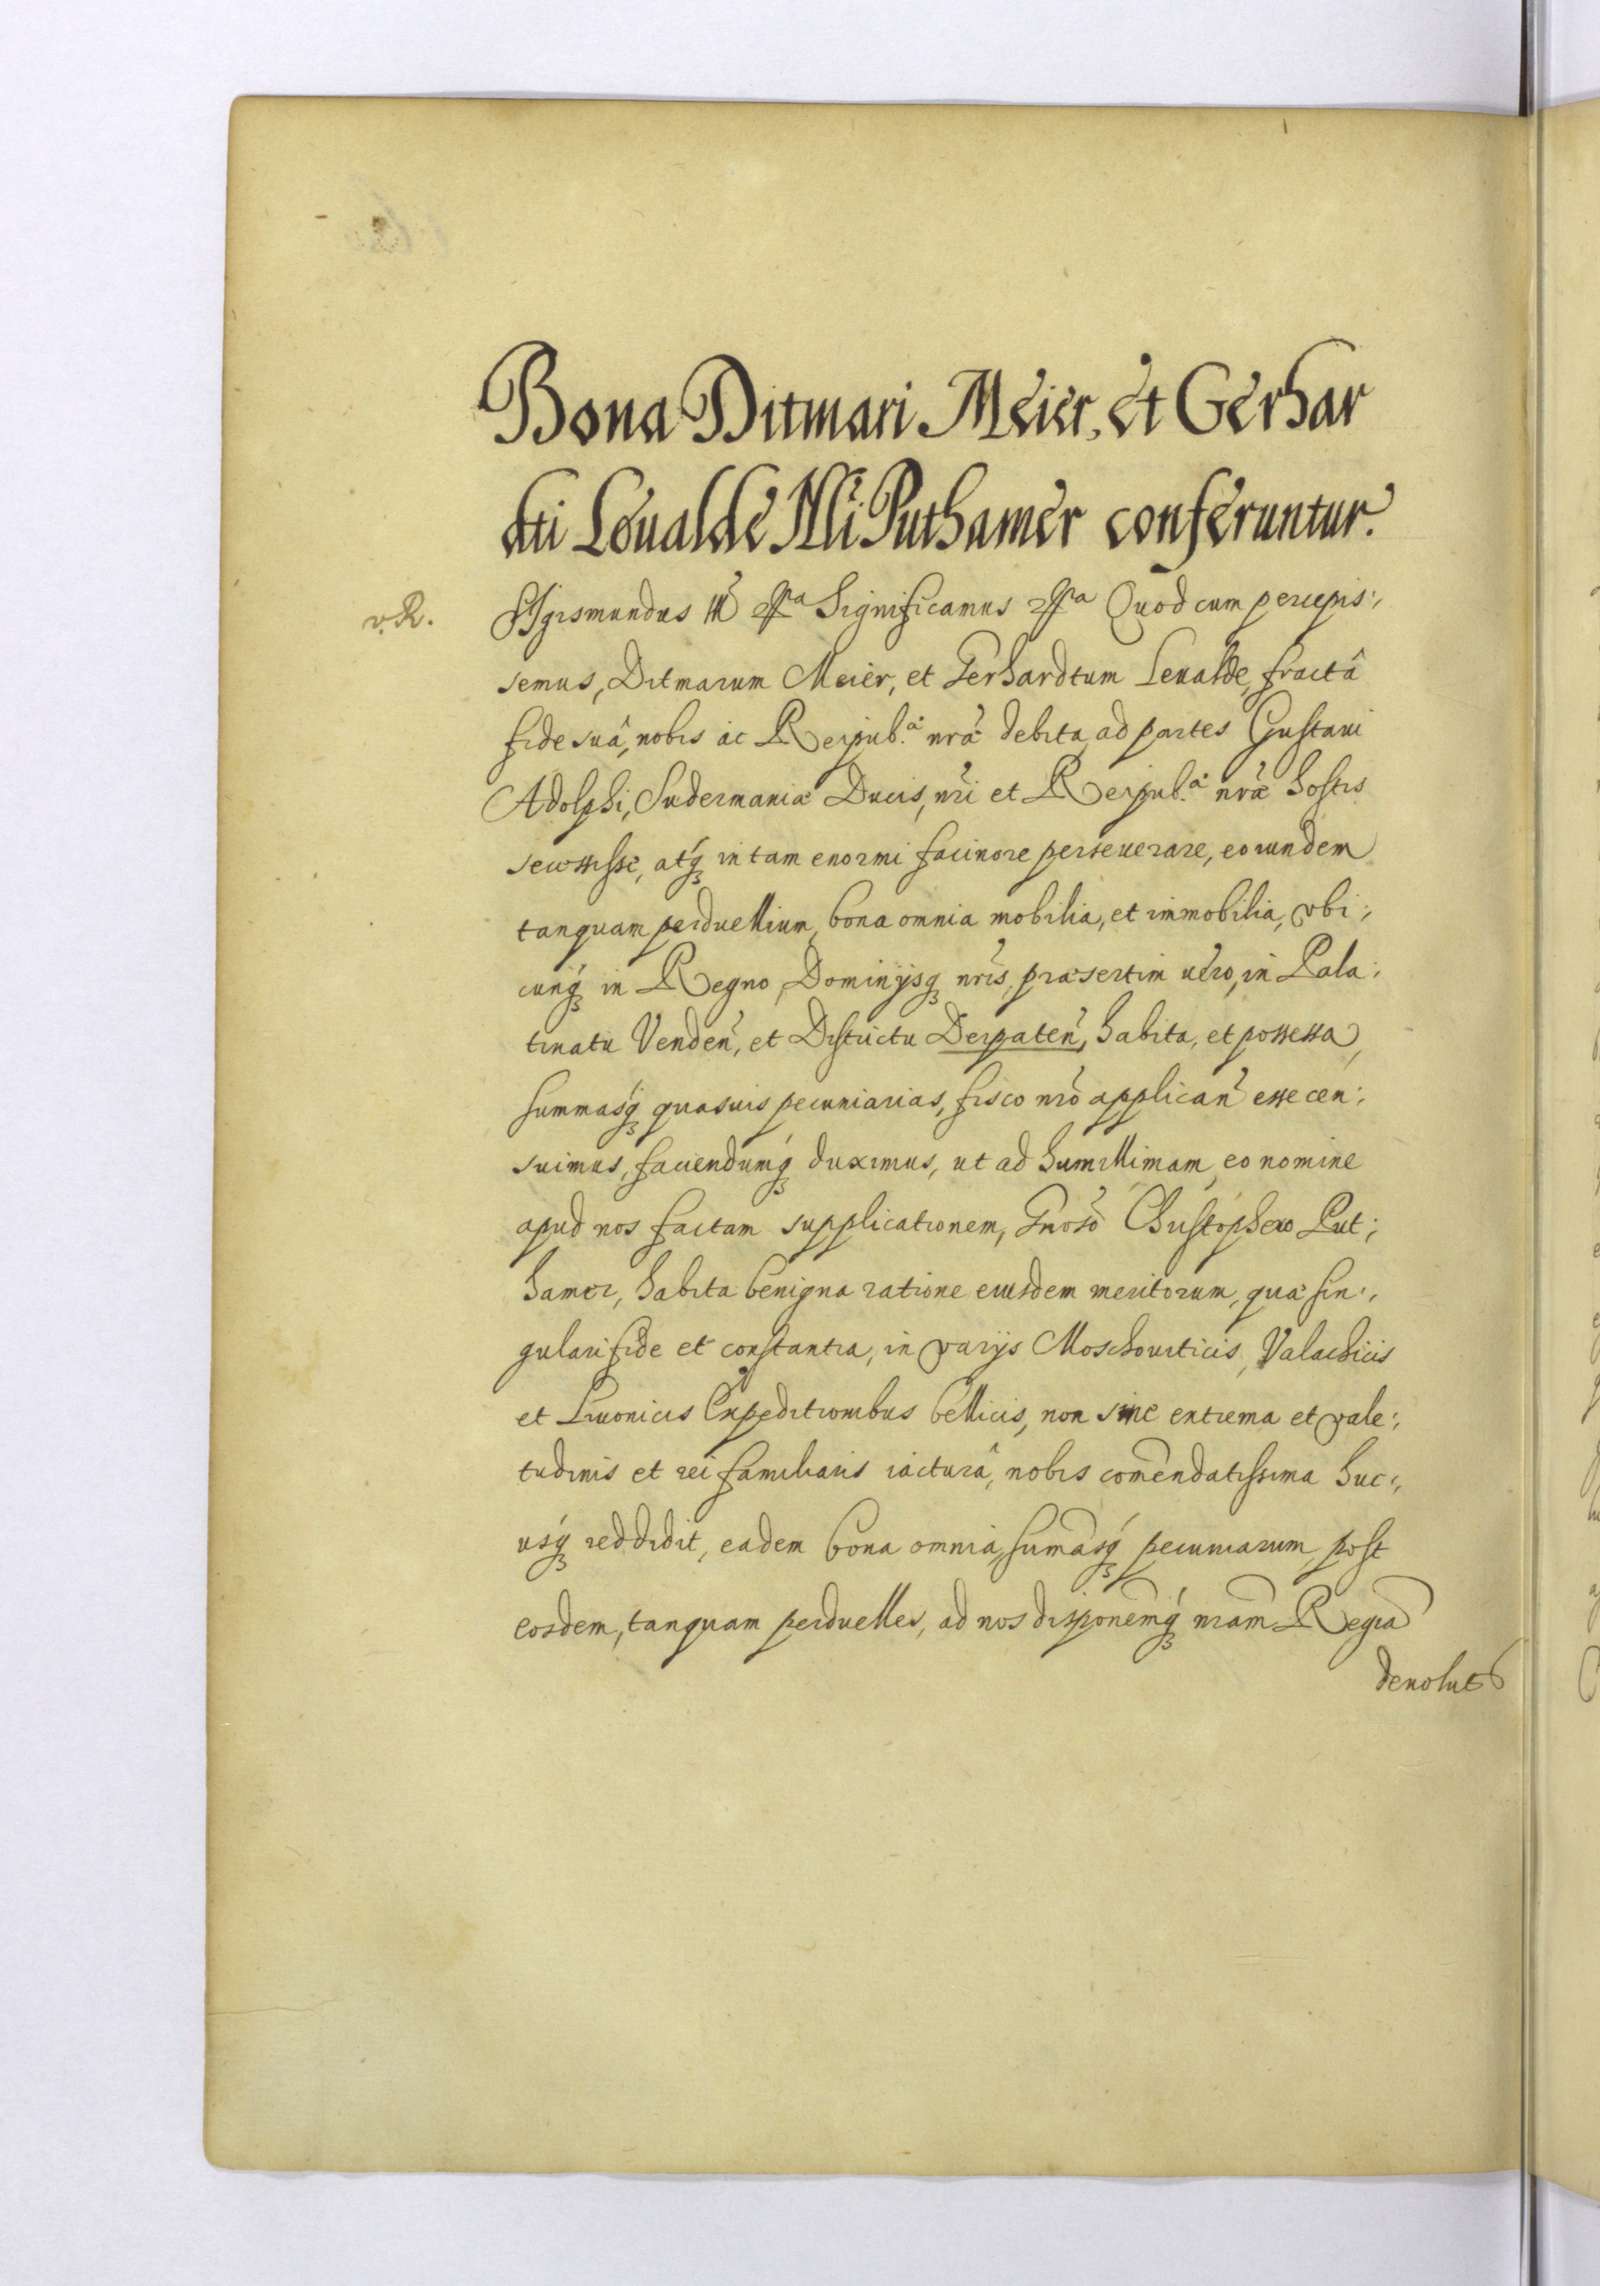 Bona Ditmari Meier, et Gerhar
dti Leualde Nli Puthamer conferuntur.
v. R.
Sigismundus III etc̃a Significamus etc̃a Quod cum percepis:,
semus, Ditmarum Meier, et Gerhardtum Leualde, fractâ
fide suâ, nobis ac Reipub.æ nr̃æ debita, ad partes Gustaui
Adolphi, Sudermaniæ Ducis, nr̃i et Reipub.æ nr̃æ hostis
secessisse, atq́ꝫ in tam enormi facinore perseuerare, eorundem
tanquam perduellium, bona omnia mobilia, et immobilia, vbi:,
cunq́ꝫ in Regno, Dominijsqꝫ nr̃is, præsertim uero, in Pala:,
tinatu Venden̄, et Districtu Derpaten̄, habita, et possessa,
summasq́ꝫ quasuis pecuniarias, fisco nr̃o applican̄ esse cen:,
suimus, faciendumq́ꝫ duximus, ut ad humillimam, eo nomine
apud nos factam supplicationem, Gnoso Christophero Put:,
hamer, habita benigna ratione eiusdem meritorum, quæ sin:,
gulari fide et constantia, in varijs Moschouiticis, Valachicis
et Liuonicis Expeditionibus bellicis, non sine extrema et vale:,
tudinis et rei familiaris iacturâ, nobis com̄endatissima huc:,
usq́ꝫ reddidit, eadem bona omnia, sum̄asq́ꝫ pecuniarum, post
eosdem, tanquam perduelles, ad nos disponem̄q́ꝫ nram̄ Regiā
deuolut